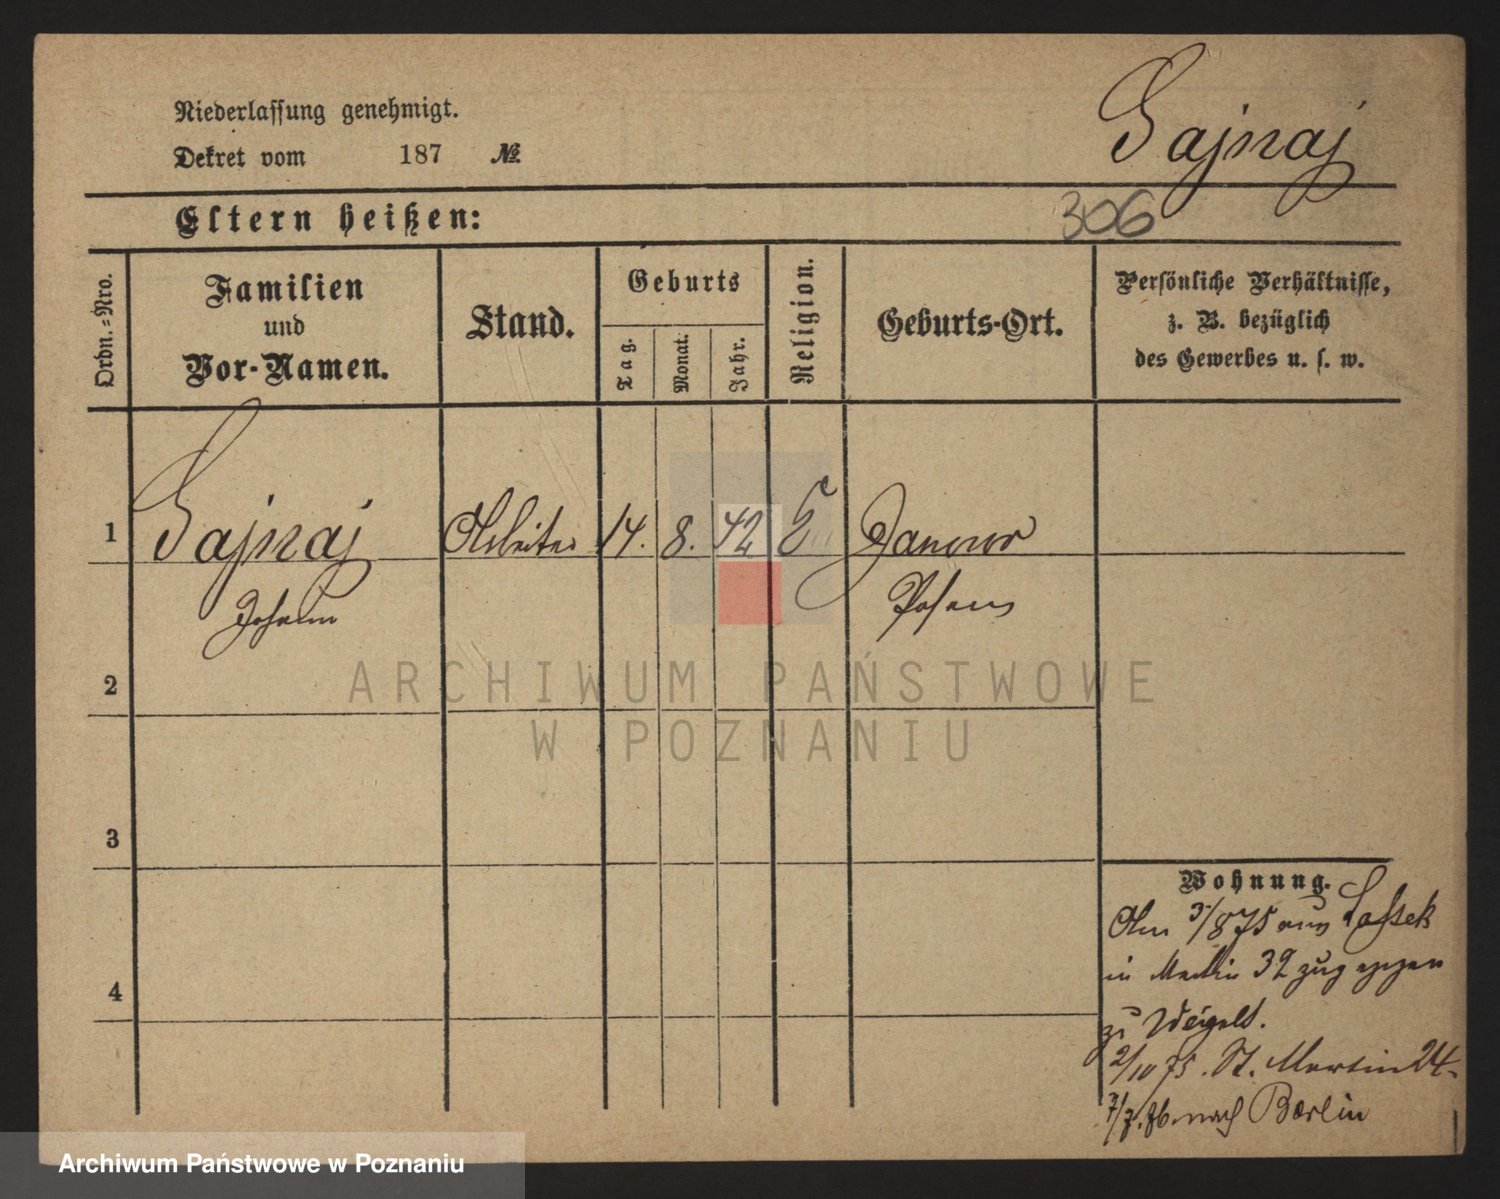 Niederlassung genehmigt.
Dekret vom 187 №
Gajnaj
306
Eltern heißen:
Ordn.=Nro.
Familien
und
Vor-Namen.
Stand.
Geburts
Tag.
Monat.
Jahr.
Religion.
Geburts-Ort.
Persönliche Verhältnisse,
z. B. bezüglich
des Gewerbes u. s. w.
1 Gajnaj Arbeiter 14. 8. 42 Janowo
Johann Posen
2
3
4
Wohnung.
Am 3/8 75 aus
in Martin 32 zugezogen
zu Weigelt.
2/10 75. St. Martin 24.
7/7. 76 nach Berlin
ARCHIWUM PAŃSTWOWE
W POZNANIU
Archiwum Państwowe w Poznaniu